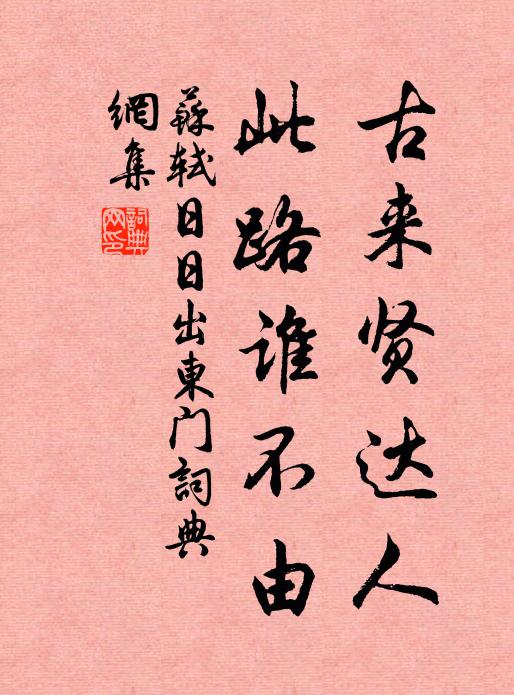 古来贤达人
此路谁不由
蘇軾日日出東门詞典
網集
詞典
网印